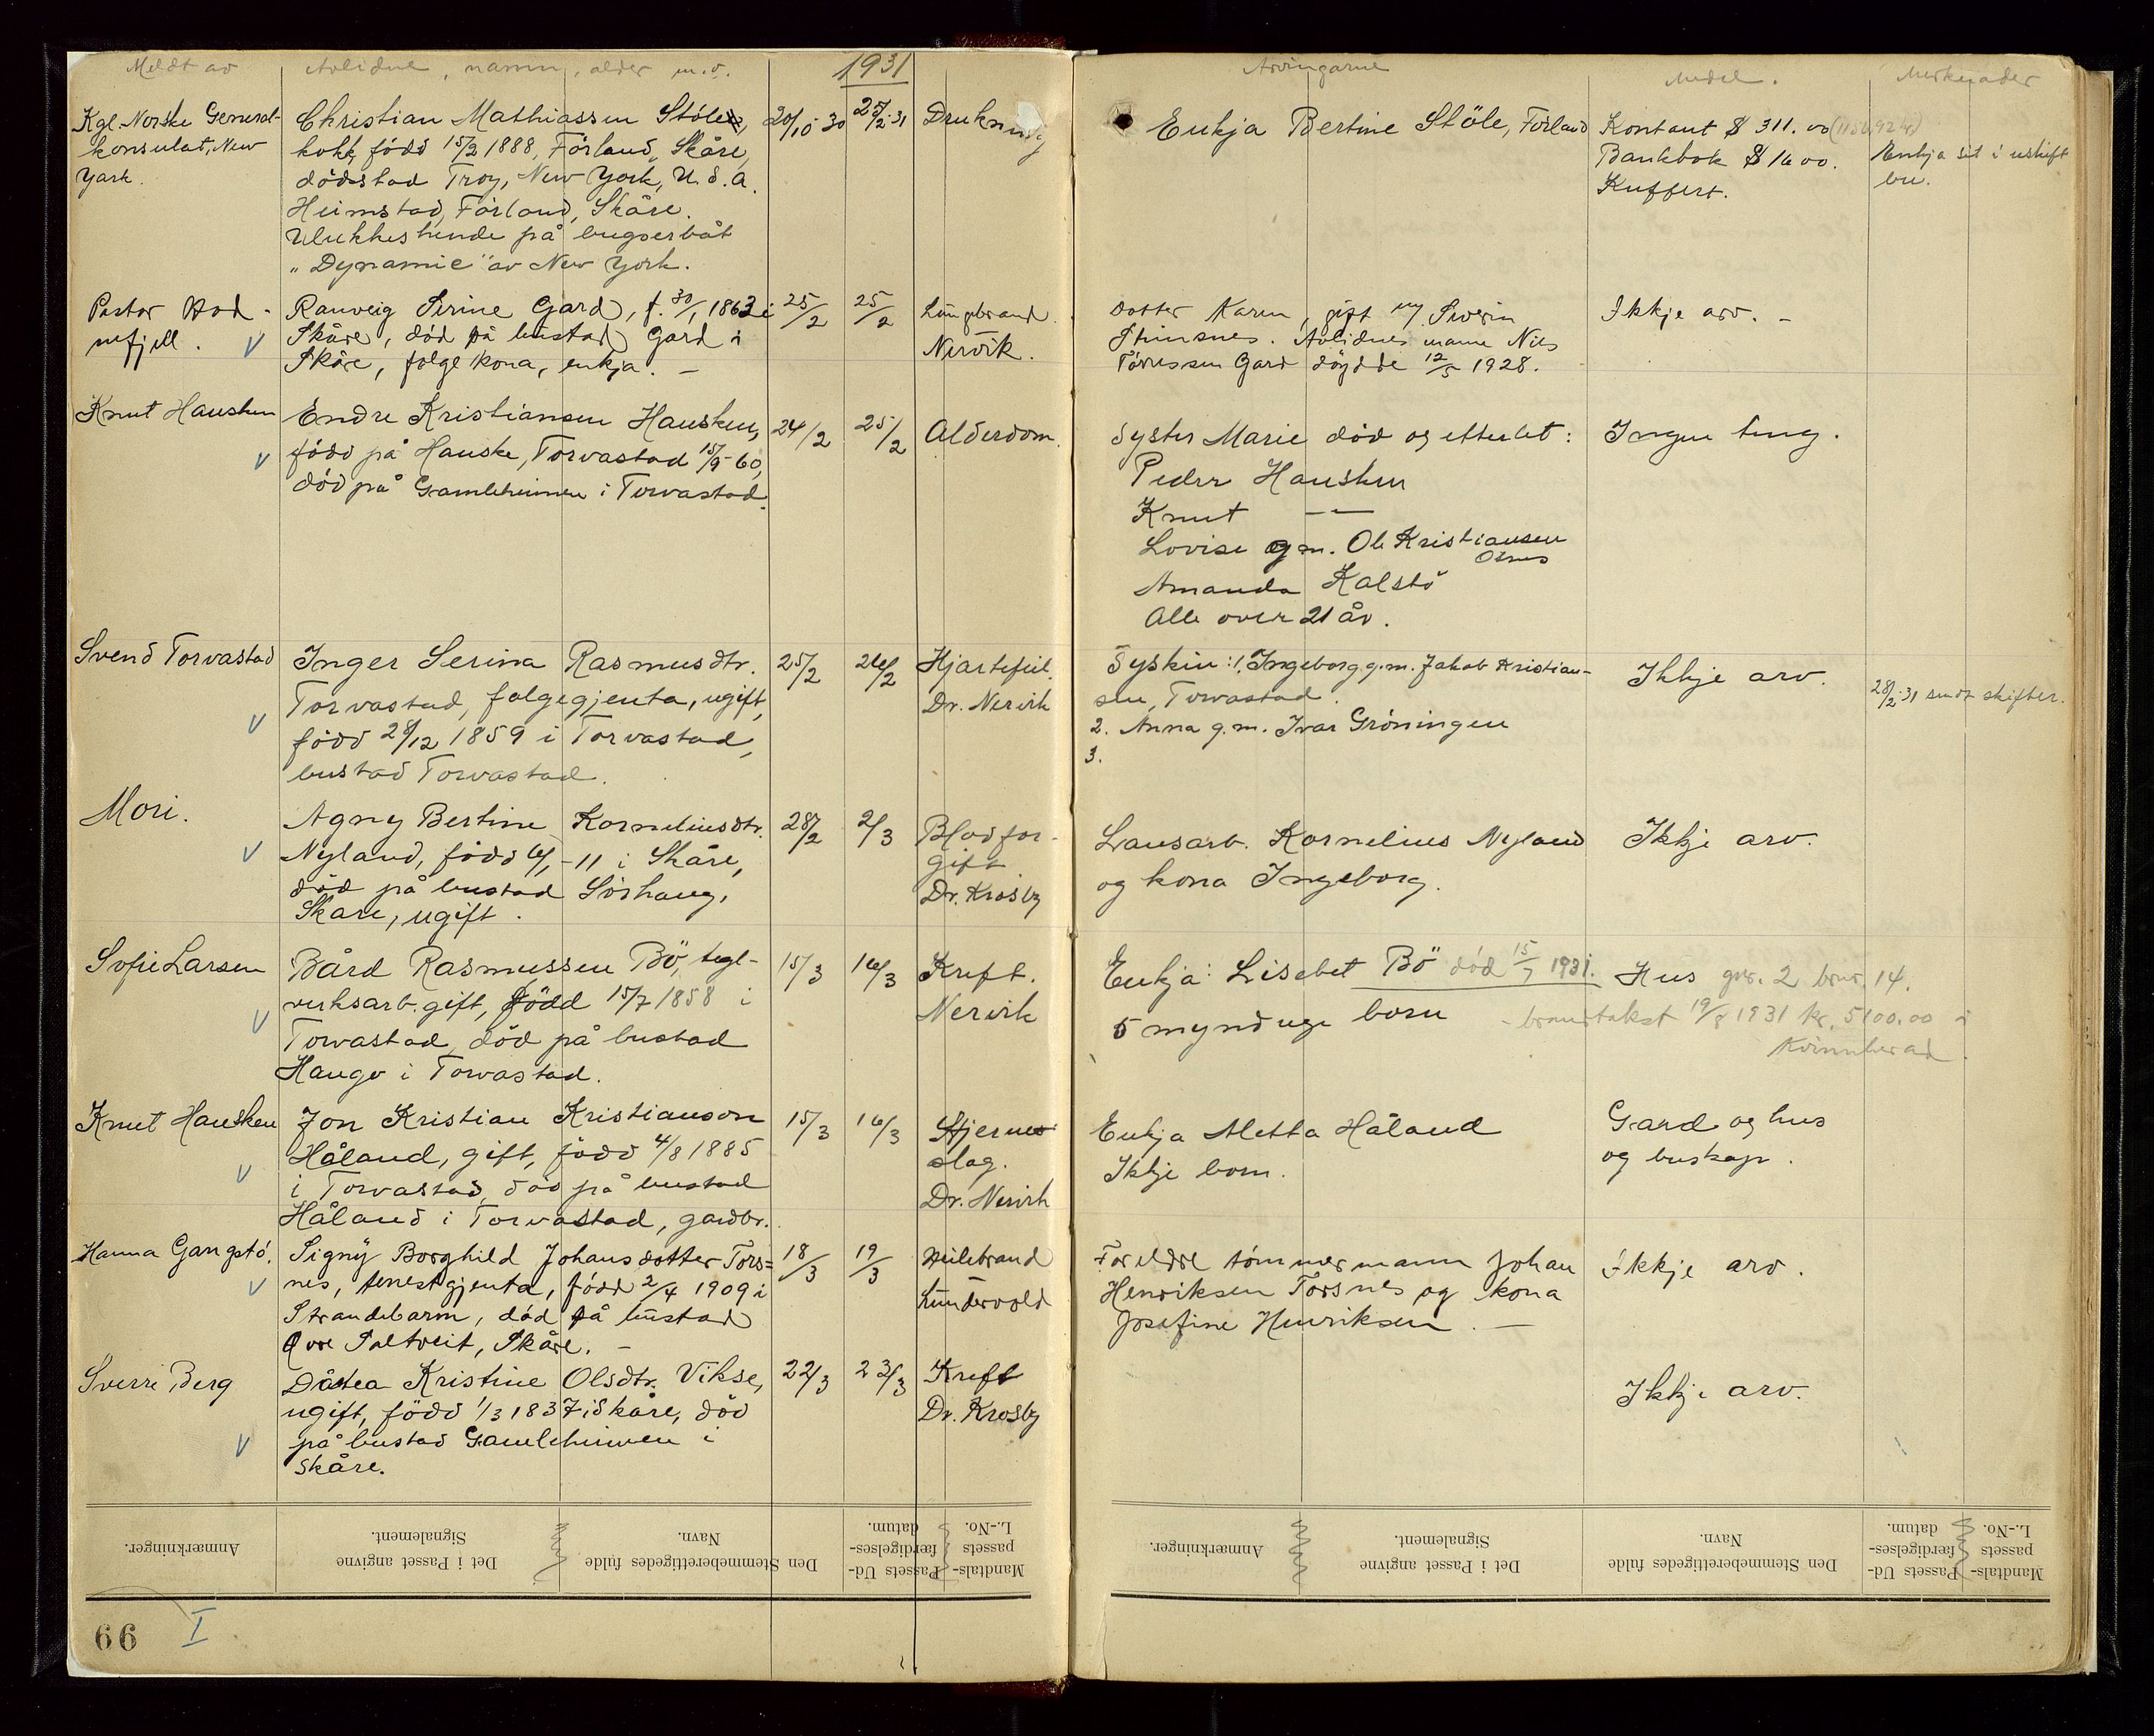 Meldt av
Avlidne, namn, alder m.v.
1931
Arvingarne
Midel.
Merknader
Kgl. Norske General-
konsulat, New
York.
Christian Mathiassen Stöle,
kokk, född 15/2 1888, Förland, Skåre,
dödsstad Troy, New York, U.S.A.
Heimstad, Förland, Skåre.
Ulukkeshende på bugserbåt
"Dynamic" av New York.
20/10-30
25/2-31
Drukning
Enkja Bertine Stöle, Förland
Kontant $ 311.00
Bankbok $ 1600.
Kuffert.
Enkja sit i uskift
bu.
Pastor Hod-
nefjell.
Ranveig Serine Gard, f. 30/1 1863 i
Skåre, död på bustad Gard i
Skåre, folgekona, enkja. -
25/2
25/2
Lungebrand.
Nervik.
Dotter Karen, gift m/ Severin
Stumsnes. Avlidnes mann Nils
Törressen Gard döydde 12/5 1928.
Ikkje arv. -
Knut Hausken
Endre Kristiansen Hausken,
född på Hauske, Torvastad 15/9-60,
död på Gamleheimen i Torvastad.
24/2
25/2
Alderdom.
Syster Marie död og etterlet:
Peder Hausken
Knut -"-
Lovise g m. Ole Kristiansen
Osnes
Amanda Kalstö
Alle over 21 år.
Ingen ting.
Svend Torvastad
Inger Serina Rasmusdtr.
Torvastad, folgegjenta, ugift,
född 28/12 1859 i Torvastad,
bustad Torvastad.
25/2
26/2
Hjartefeil.
Dr. Nervik
Syskin: 1. Ingeborg g.m. Jakob Kristian-
sen, Torvastad.
2. Anna g.m. Ivar Gröningen
3.
Ikkje arv.
28/2-31 sendt skifter.
Mori.
Agny Bertine Korneliusdtr.
Nyland, född 6/1-11 i Skåre,
död på bustad Sörhaug,
Skåre, ugift.
28/2
2/3
Blodfor-
gift
Dr. Krosby
Lausarb. Kornelius Nyland
og kona Ingeborg.
Ikkje arv.
Sofie Larsen
Bård Rasmussen Bö, tegl-
verksarb. gift, född 15/7 1858 i
Torvastad, död på bustad
Hauge i Torvastad.
15/3
16/3
Kreft.
Nervik
Enkja: Lisebet Bö död 15/7 1931.
5 mynduge born
Hus gnr. 2 bnr. 14.
- branntakst 19/8 1931 kr. 5100.00 i
Kvinnherad.
Knut Hausken
Jon Kristian Kristianson
Håland, gift, född 4/8 1885
i Torvastad, död på bustad
Håland i Torvastad, gardbr.
15/3
16/3
Hjerne
slag.
Dr. Nervik
Enkja Metta Håland
Ikkje born.
Gard og hus
og buskap.
Hanna Gangstö.
Signy Borghild Johansdotter Tors=
nes, tenestgjenta, född 2/4 1909 i
Strandebarm, död på bustad
Övre Saltveit, Skåre. -
18/3
19/3
Heilebrand
Lundervold
Foreldre tömmermann Johan
Henriksen Torsnes og kona
Josefine Henriksen. -
Ikkje arv.
Sverre Berg
Dåstea Kristine Olsdtr. Vikse,
ugift, född 1/3 1837 i Skåre, död
på bustad Gamleheimen i
Skåre.
22/3
23/3
Kreft
Dr. Krosby
Ikkje arv.
Anmærkninger.
Det i Passet angivne
Signalement.
Den Stemmeberettigedes fulde
Navn.
Passets Ud-
færdigelses-
datum.
Mandtals-
passets
L.-No.
Anmærkninger.
Det i Passet angivne
Signalement.
Den Stemmeberettigedes fulde
Navn.
Passets Ud-
færdigelses-
datum.
Mandtals-
passets
L.-No.
66
I